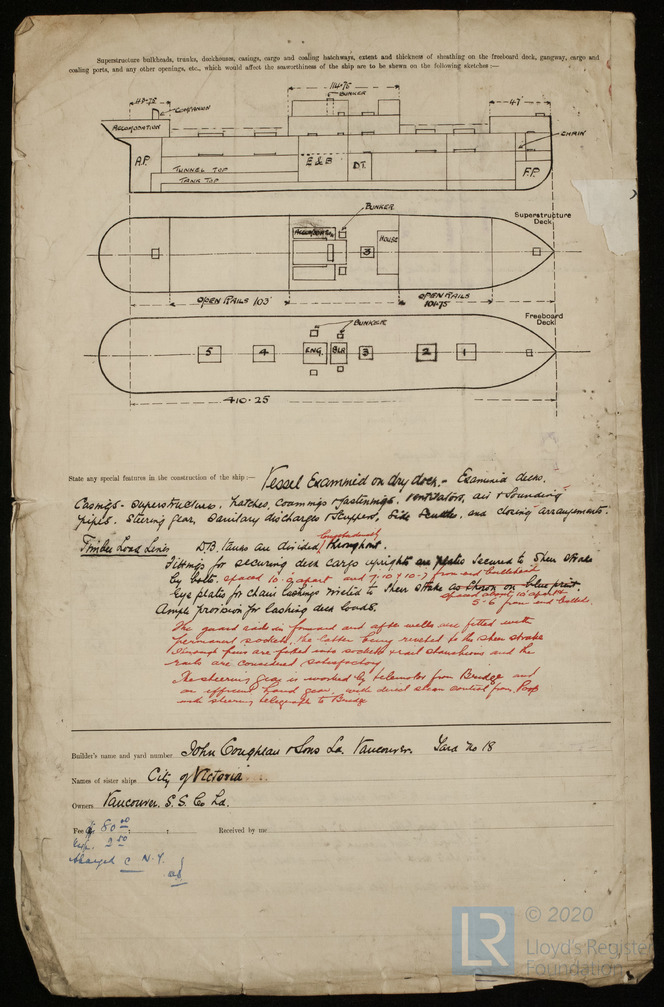 Superstructure bulkheads, trunks, deckhouses, casings, cargo and coaling hatchways, extent and thickness of sheathing on the freeboard deck, gangway, cargo and
coaling ports, and any other openings, etc., which would affect the seaworthiness of the ship are to be shewn on the following sketches :—
114.75
BUNKER
48.75
COMPANION
47'
ACCOMODATION
CHAIN
A.P.
E & B
D.T.
TUNNEL TOP
TANK TOP
F.P.
BUNKER
Superstructure
Deck
ACCOMODATION
3
HOUSE
OPEN RAILS 103'
OPEN RAILS
101.75
BUNKER
Freeboard
Deck
5
4
ENG.
BLR
3
2
1
410.25
State any special features in the construction of the ship :— Vessel Examined on dry dock. - Examined decks,
Casings - superstructures, hatches, coamings & fastenings, ventilators, air & sounding
pipes. Steering gear, sanitary discharges & scuppers, side and closing arrangements.
longitudinally
Timber Load Lines D.B. tanks are divided throughout.
Fittings for securing deck cargo uprights are plates secured to sheer strake
by bolts. spaced 10' apart and 7-10 & 10-7 from end bulkhead
Eye plates for chain lashings riveted to sheer strake as shown on blue print.
spaced about 10' apart &
5-6 from end bulkhd.
Ample provision for lashing deck loads.
The guard rails in forward and after wells are fitted with
permanent sockets, the latter being riveted to the sheer strake
Through pins are fitted into sockets & rail stanchions and the
rails are considered satisfactory
The steering gear is worked by telemotor from Bridge and
an efficient hand gear, with direct steam control from Poop
with steering telegraph to Bridge
Builder's name and yard number John Coughlan & Sons Ld. Vancouver. Yard No 18
Names of sister ships City of Victoria
Owners Vancouver. S.S. Co Ld.
Fee $ 80.00 : :
Received by me
Exp. 2.50
charged C N.Y.
LR
© 2020
Lloyd's Register
Foundation